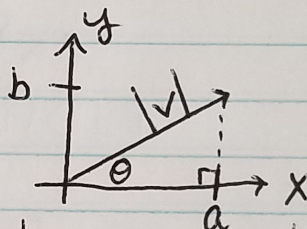 y
b
V
θ
X
a